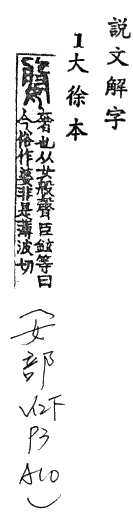 説文解字
1大徐本
奢也从女般聲臣鉉等曰
今俗作婆非是薄波切
(女部
V12下
P3
A10)